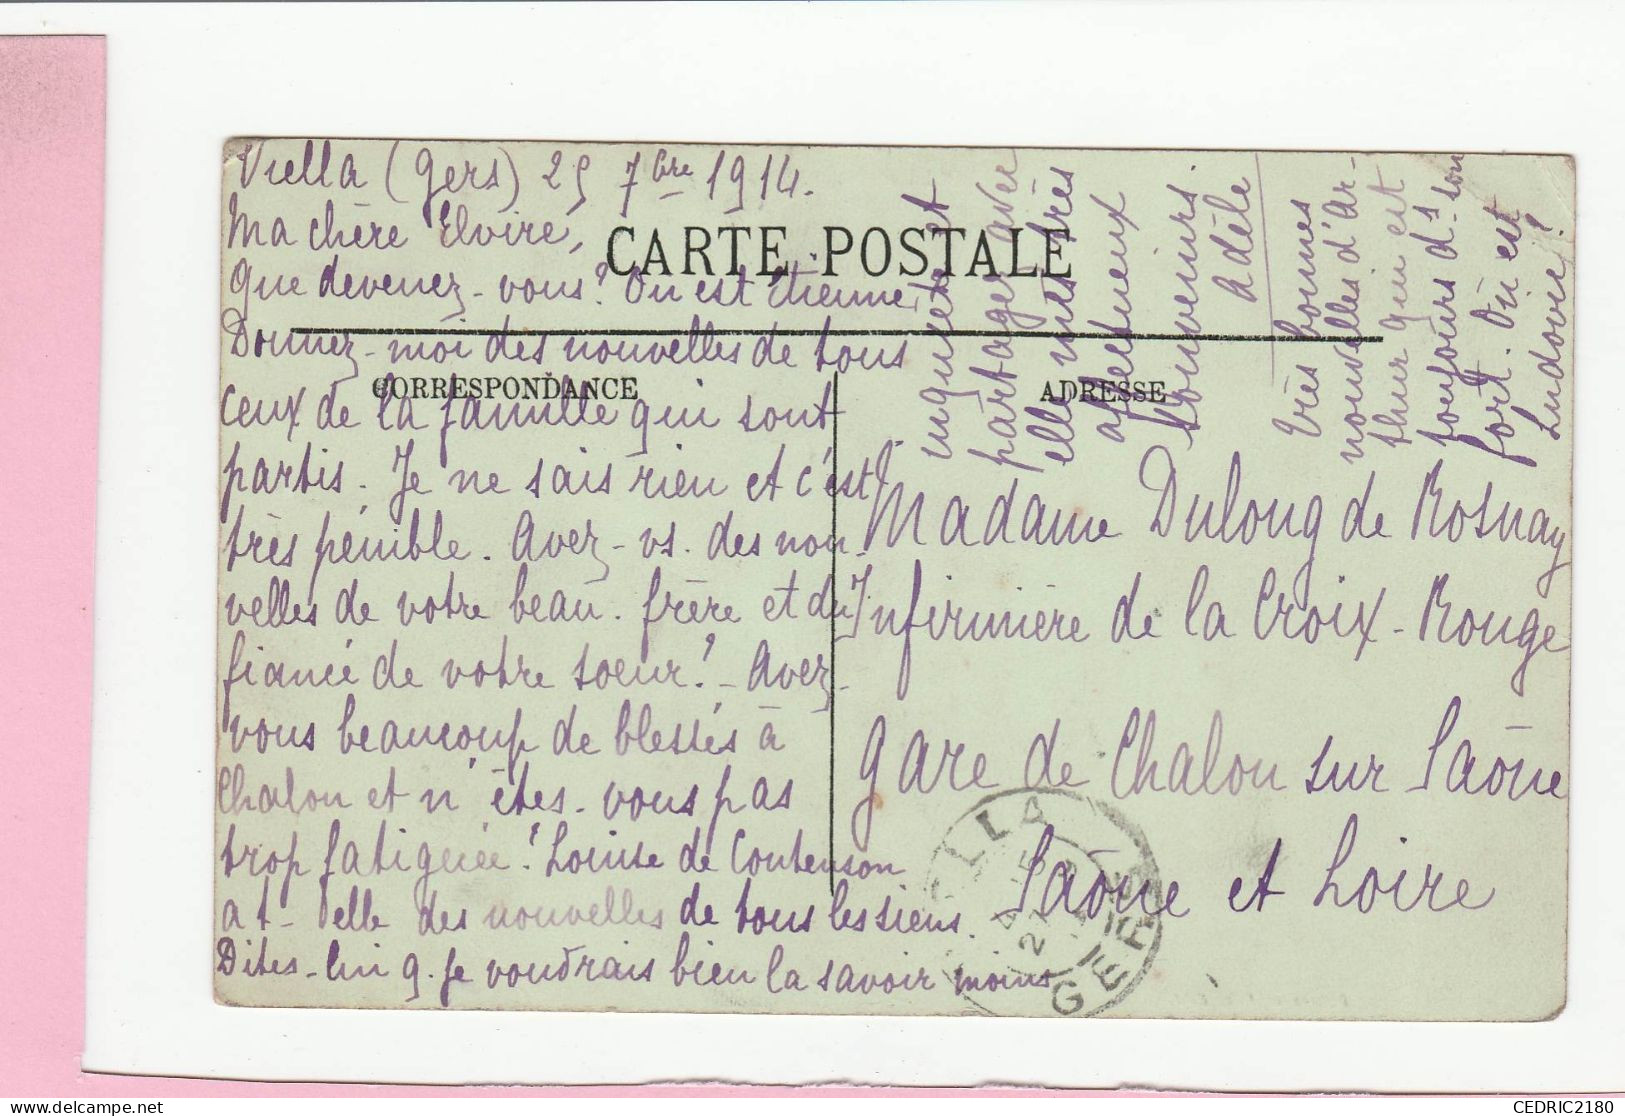 Viella (Gers) 25 7bre 1914.
Ma chère Elvire,
CARTE POSTALE
Que devenez-vous? Où est Étienne?
Donnez-moi des nouvelles de tous
CORRESPONDANCE
ceux de la famille qui sont
partis. Je ne sais rien et c'est
très pénible. Avez-vs. des nou-
velles de votre beau-frère et du
fiancé de votre soeur? - Avez-
vous beaucoup de blessés à
Chalon et n'êtes-vous pas
trop fatiguée? Louise de Contenson
at-elle des nouvelles de tous les siens.
Dites-lui q. je voudrais bien la savoir moins
inquiète et
partager avec
elle mes très
affectueux
souvenirs.
Adèle
Très bonnes
nouvelles d'Ar-
thur qui est
toujours ds. son
fort. Où est
Ludovic?
ADRESSE
Madame Dulong de Rosnay
Infirmière de la Croix-Rouge
Gare de Chalon sur Saône
Saône et Loire
LLA
GERS
CEDRIC2180